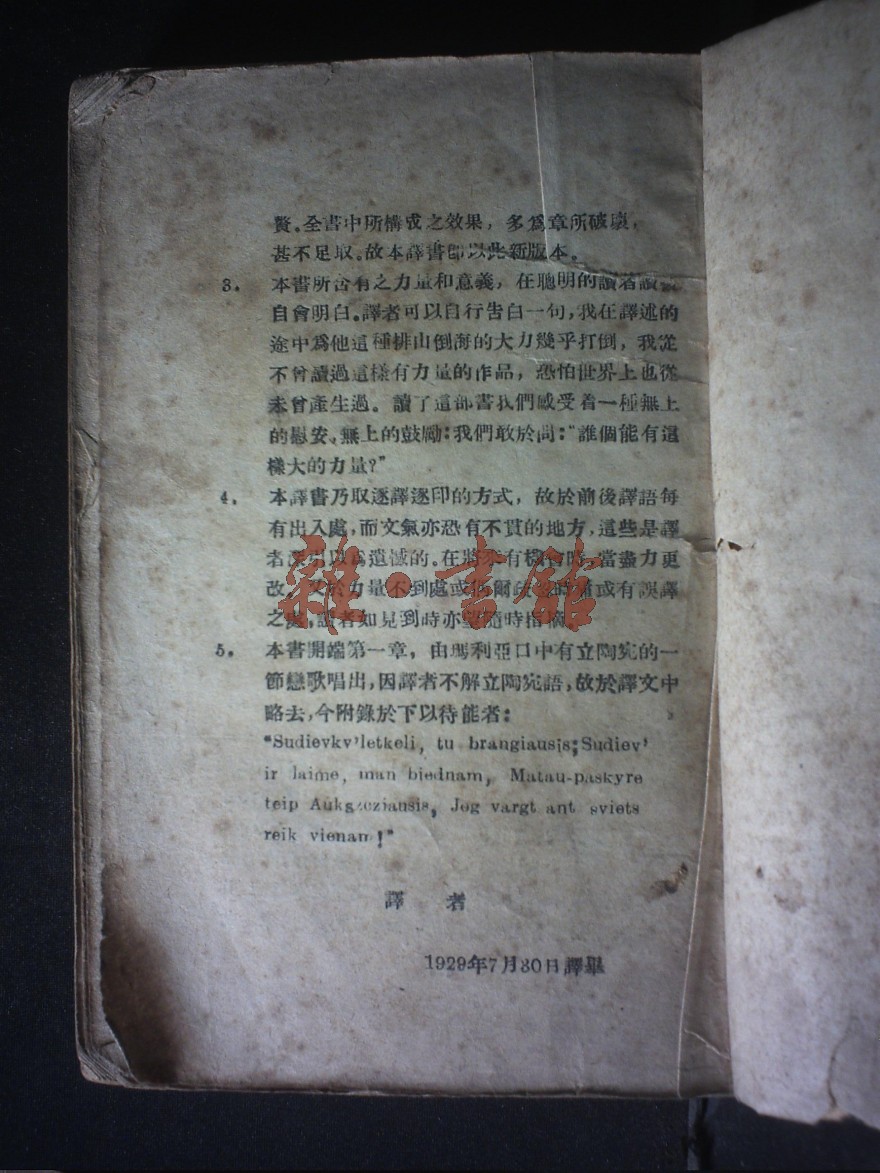 贅。全書中所構成之效果，多爲章所破壞，
甚不足取。故本譯書即以此新版本。
3. 本書所含有之力量和意義，在聰明的讀者讀
自會明白。譯者可以自行告白一句，我在譯述的
途中爲他這種排山倒海的大力幾乎打倒，我從
不曾讀過這樣有力量的作品，恐怕世界上也從
未曾產生過。讀了這部書我們感受着一種無上
的慰安、無上的鼓勵：我們敢於問：“誰個能有這
樣大的力量？”
4. 本譯書乃取逐譯逐印的方式，故於前後譯語每
有出入處，而文氣亦恐有不貫的地方，這些是譯
者深引以爲遺憾的。在將來有機會時，當盡力更
改。又於力量不到處或偶爾 時 或有誤譯
之處，讀者如見到時亦望隨時指摘。
5. 本書開端第一章，由瑪利亞口中有立陶宛的一
節戀歌唱出，因譯者不解立陶宛語，故於譯文中
略去，今附錄於下以待能者：
“Sudievkv’letkeli, tu brangiausis; Sudiev’
ir laime, man biednam, Matau-paskyre
teip Aukszcziausis, Jog vargt ant sviets
reik vienam!”
譯 者
1929年7月30日譯畢
雜·書館